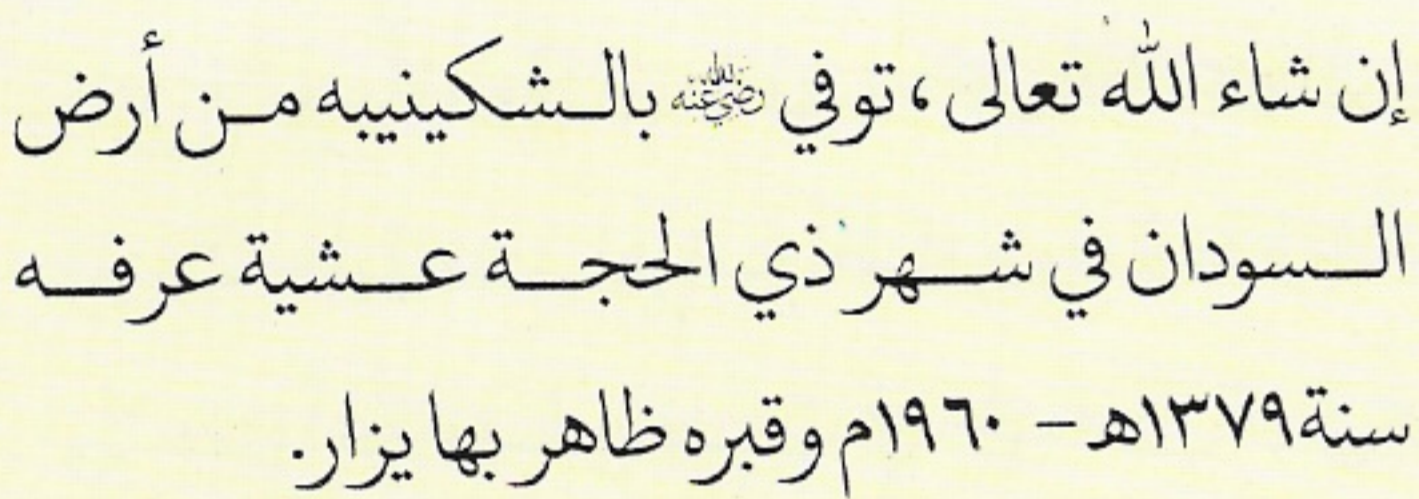 إن شاء الله تعالى، توفي رضي الله عنه بالشكينيبه من أرض
السودان في شهر ذي الحجة عشية عرفه
سنة ١٣٧٩هـ – ١٩٦٠م وقبره ظاهر بها يزار.